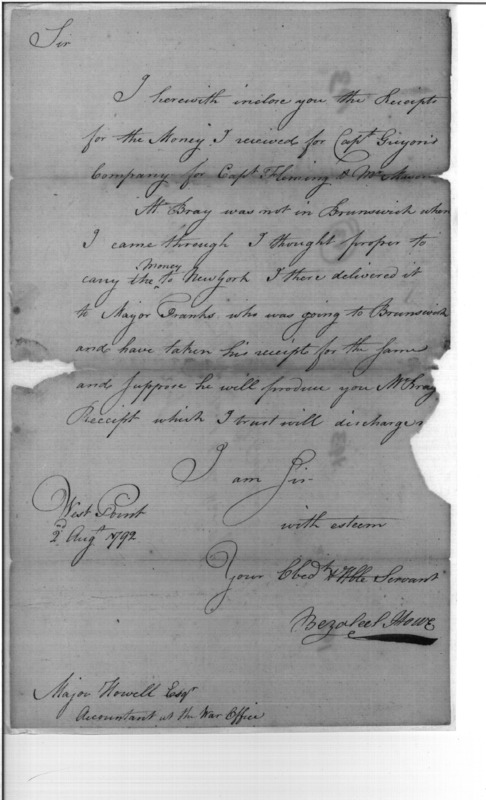 Sir
I herewith inclose you the Receipts
for the Money I received for Capt Guyon's
Company for Capt Fleming & Mr
Mr Bray was not in Brunswick when
I came through I thought proper to
carry the Money to New York I there delivered it
to Major Franks who was going to Brunswick
and have taken his receipt for the same
and suppose he will produce you Mr Bray
Receipt which I trust will discharge
I am Sir
with esteem
Your Obedt & Hble Servant
Bezaleel Howe
West Point
2d Augt 1792
Major Howell Esqr
Accountant at the War Office